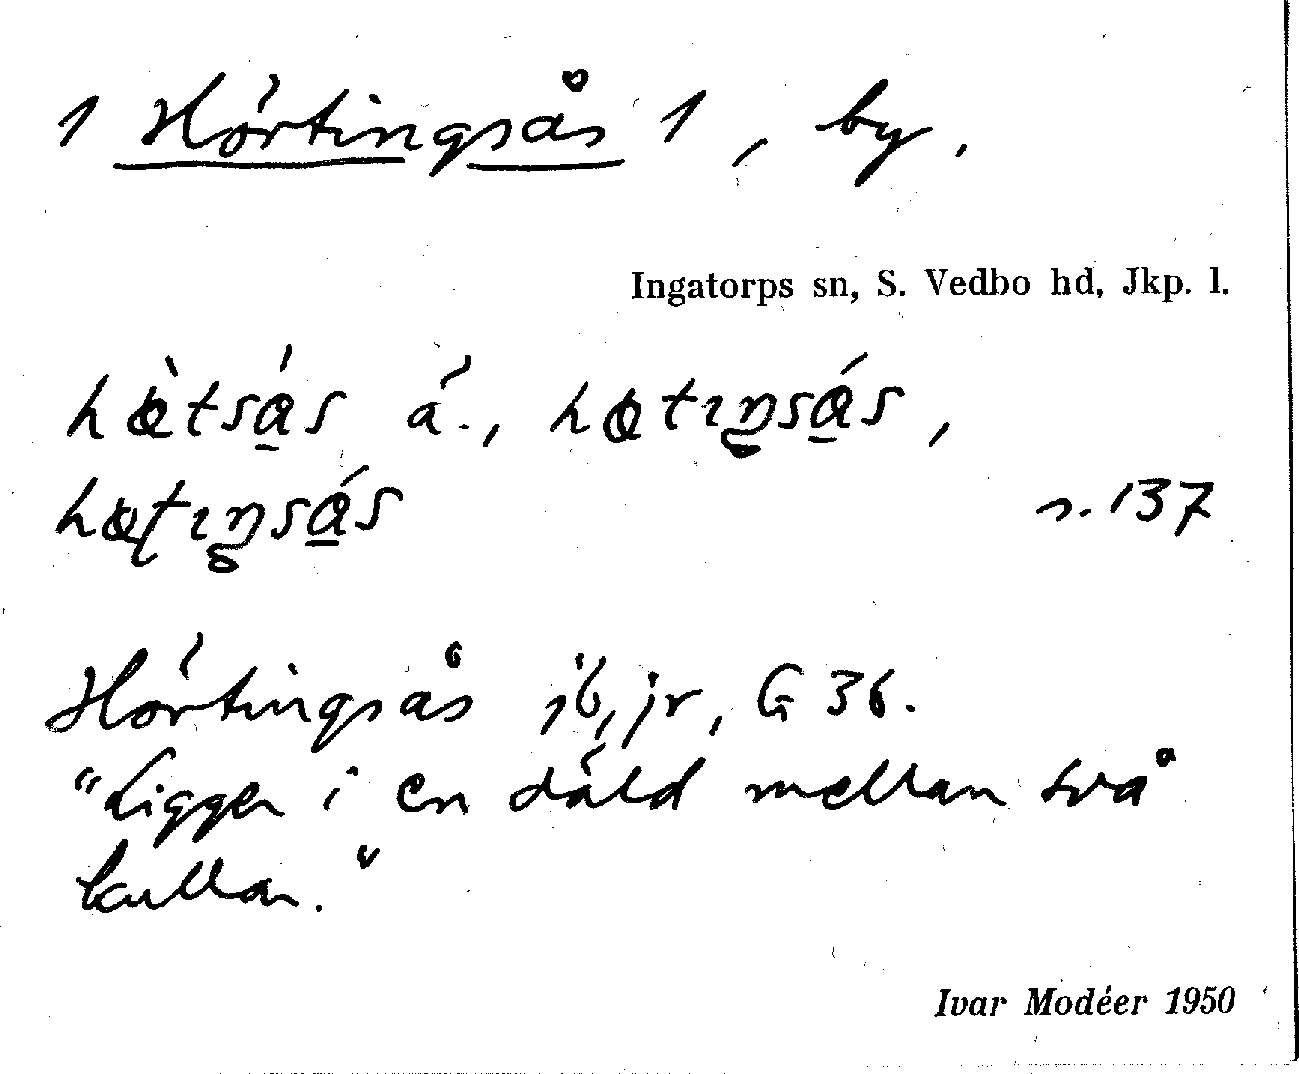 1 Hörtingsås 1, by.
Ingatorps sn, S. Vedbo hd, Jkp. l.
hø̀tsá̲s á., høtıŋsá̲s,
høʈıŋsá̲s s. 137
Hörtingsås jb, jr, G 36.
"Ligger i en däld mellan två
kullar."
Ivar Modéer 1950